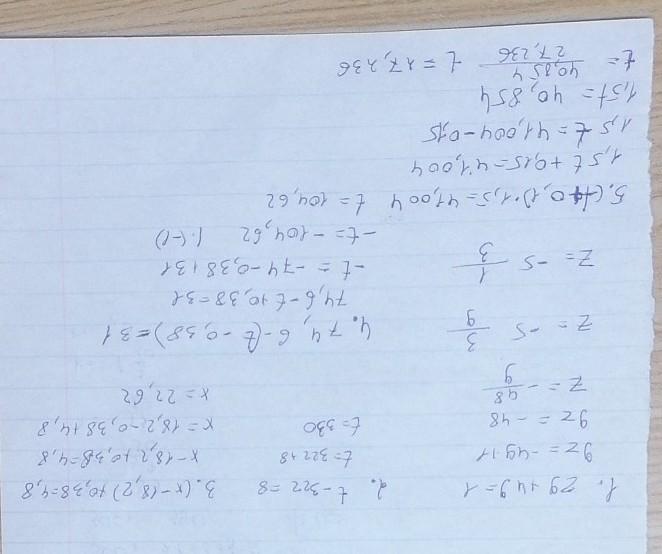 1. z9+49=1
9z = -49+1
9z = -48
z = - 48/9
z = -5 3/9
z = -5 1/3
2. t-322=8
t=322+8
t=330
3. (x-18,2)+0,38=4,8
x-18,2+0,38=4,8
x=18,2-0,38+4,8
x=22,62
4. 74,6-(t-0,38)=31
74,6-t+0,38=31
-t = -74-0,38+31
-t = -104,62 |·(-1)
t=104,62
5. (t+0,1)·1,5=41,004
1,5t+0,15=41,004
1,5t=41,004-0,15
1,5t=40,854
t= 40,854/27,236 t=27,236